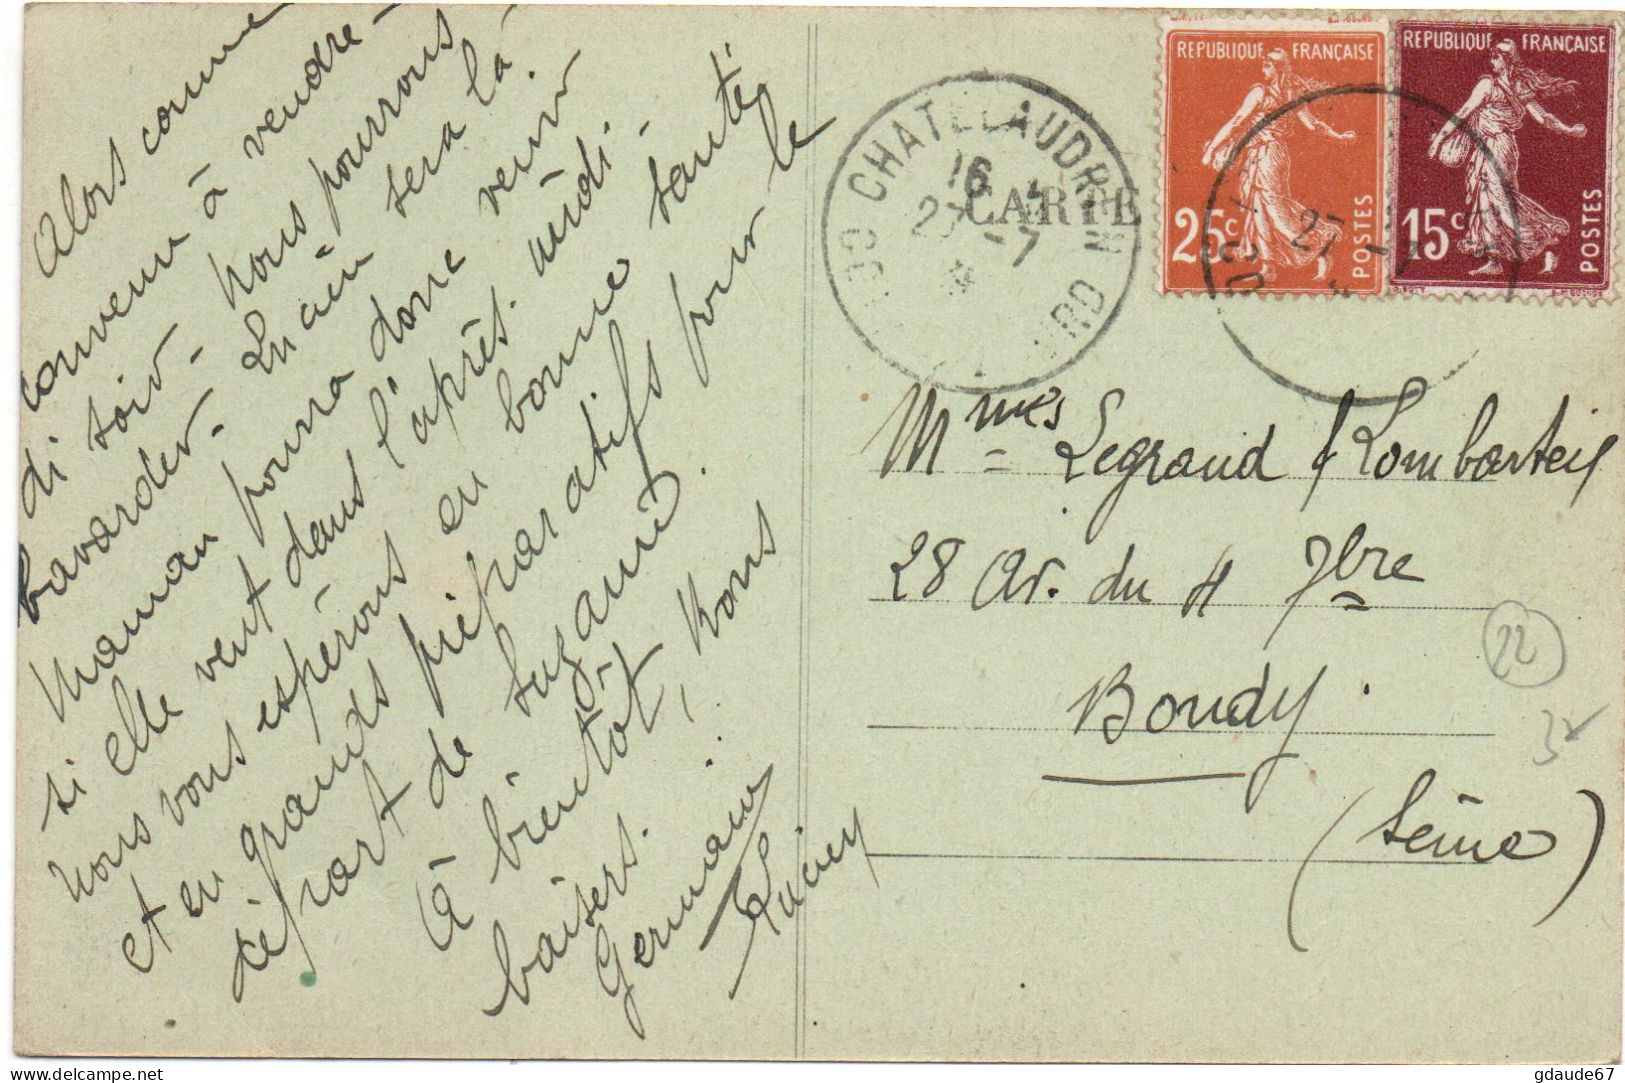 Alors comme
convenu à vendre-
di soir - nous pourrons
bavarder - Lucien sera là
Maman pourra donc venir
si elle veut dans l'après-midi -
nous vous espérons en bonne santé
et en grands préparatifs pour le
départ de Suzanne.
à bientôt, bons
baisers.
Germaine
Lucien
CHATELAUDREN
16
27 -7
CARTE
REPUBLIQUE FRANÇAISE
25c
POSTES
REPUBLIQUE FRANÇAISE
15c
POSTES
27 -7
Mmes Legrand & Lombarteix
28 Av. du 4 7bre
Bondy.
(Seine)
22
gdaude67